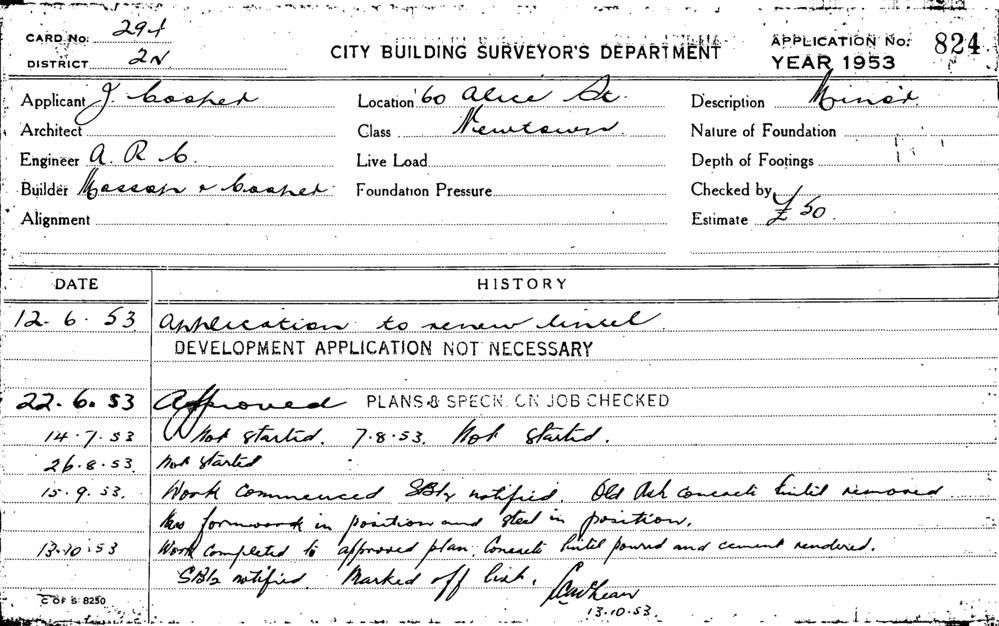 CARD No: 294
CITY BUILDING SURVEYOR'S DEPARTMENT
APPLICATION No: 824
DISTRICT 2N
YEAR 1953
Applicant J. Cooper Location 60 Alice St. Description Minor
Architect Class Newtown Nature of Foundation
Engineer A. R. C. Live Load Depth of Footings
Builder & Cooper Foundation Pressure Checked by
Alignment Estimate £50
DATE HISTORY
12.6.53 Application to renew lintel
DEVELOPMENT APPLICATION NOT NECESSARY
22.6.53 Approved PLANS & SPECN. ON JOB CHECKED
14.7.53 Not started. 7.8.53. Not started.
26.8.53. Not started
15.9.53. Work commenced notified. Old Ash concrete lintil removed
New formwork in position and steel in position.
13.10.53 Work completed to approved plan. Concrete lintil poured and cement rendered.
notified. Marked off list.
13.10.53.
C OF S 8250